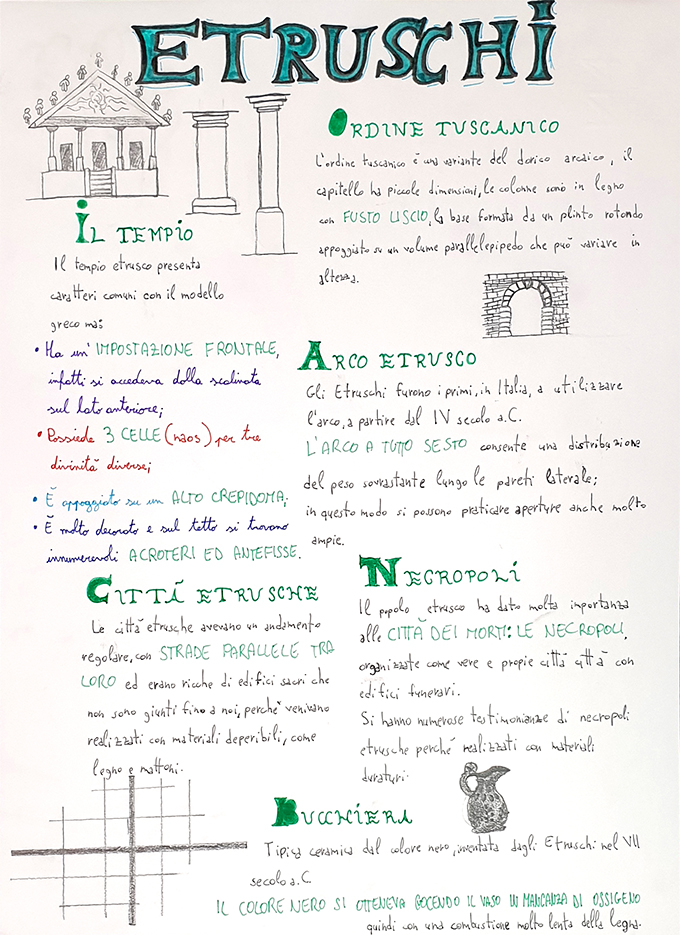 ETRUSCHI
ORDINE TUSCANICO
L'ordine tuscanico è una variante del dorico arcaico, il
capitello ha piccole dimensioni, le colonne sono in legno
con FUSTO LISCIO, la base formata da un plinto rotondo
appoggiato su un volume parallelepipedo che può variare in
altezza.
IL TEMPIO
Il tempio etrusco presenta
caratteri comuni con il modello
greco ma:
• Ha un' IMPOSTAZIONE FRONTALE,
infatti si accedeva dalla scalinata
sul lato anteriore;
• Possiede 3 CELLE (naos) per tre
divinità diverse;
• È appoggiato su un ALTO CREPIDOMA;
• È molto decorato e sul tetto si trovano
innumerevoli ACROTERI ED ANTEFISSE.
ARCO ETRUSCO
Gli Etruschi furono i primi, in Italia, a utilizzare
l'arco, a partire dal IV secolo a.C.
L'ARCO A TUTTO SESTO consente una distribuzione
del peso sovrastante lungo le pareti laterale;
in questo modo si possono praticare aperture anche molto
ampie.
CITTÁ ETRUSCHE
Le città etrusche avevano un andamento
regolare, con STRADE PARALLELE TRA
LORO ed erano ricche di edifici sacri che
non sono giunti fino a noi, perché venivano
realizzati con materiali deperibili, come
legno e mattoni.
NECROPOLI
Il popolo etrusco ha dato molta importanza
alle CITTÀ DEI MORTI: LE NECROPOLI,
organizzate come vere e propie città città con
edifici funerari.
Si hanno numerose testimonianze di necropoli
etrusche perché realizzati con materiali
duraturi.
BUCCHIERI
Tipica ceramica dal colore nero, inventata dagli Etruschi nel VII
secolo a.C.
IL COLORE NERO SI OTTENEVA COCENDO IL VASO IN MANCANZA DI OSSIGENO
quindi con una combustione molto lenta della legna.